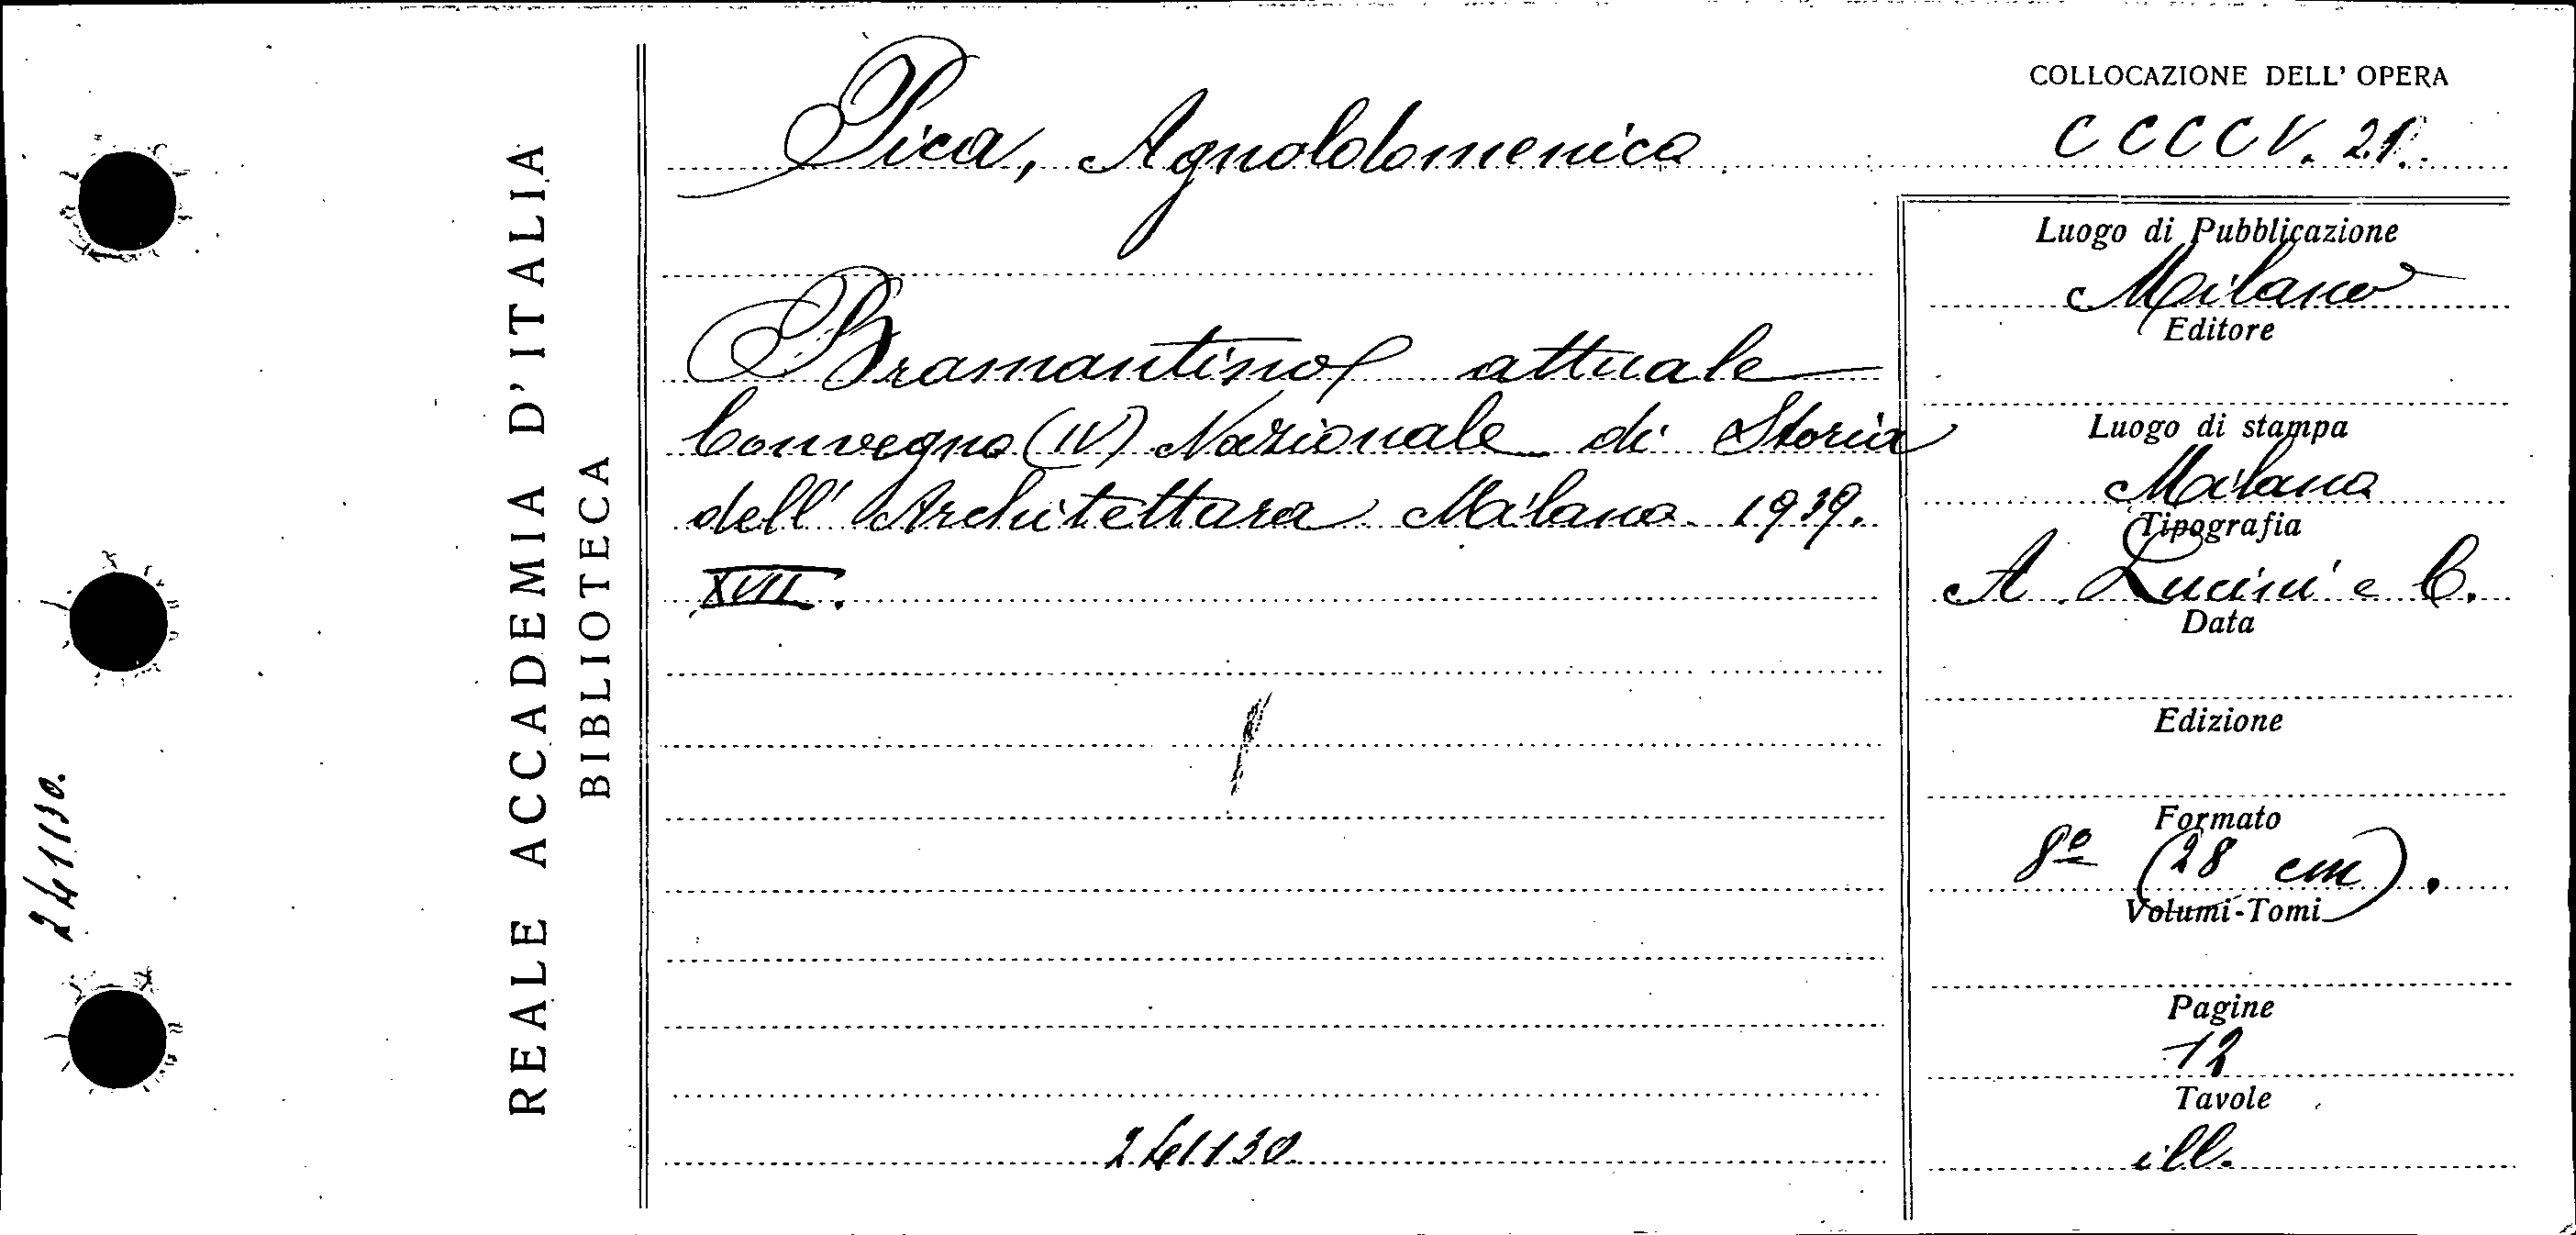 COLLOCAZIONE DELL' OPERA
Pica, Agnoldomenico
CCCCV. 21.
Bramantino attuale
Convegno (IV) Nazionale di Storia
dell' Architettura Milano 1939.
XVII.
241130
Luogo di Pubblicazione
Milano
Editore
Luogo di stampa
Milano
Tipografia
A. Lucini e C.
Data
Edizione
Formato
8º (28 cm).
Volumi-Tomi
Pagine
12
Tavole
ill.
REALE ACCADEMIA D'ITALIA
BIBLIOTECA
241130.